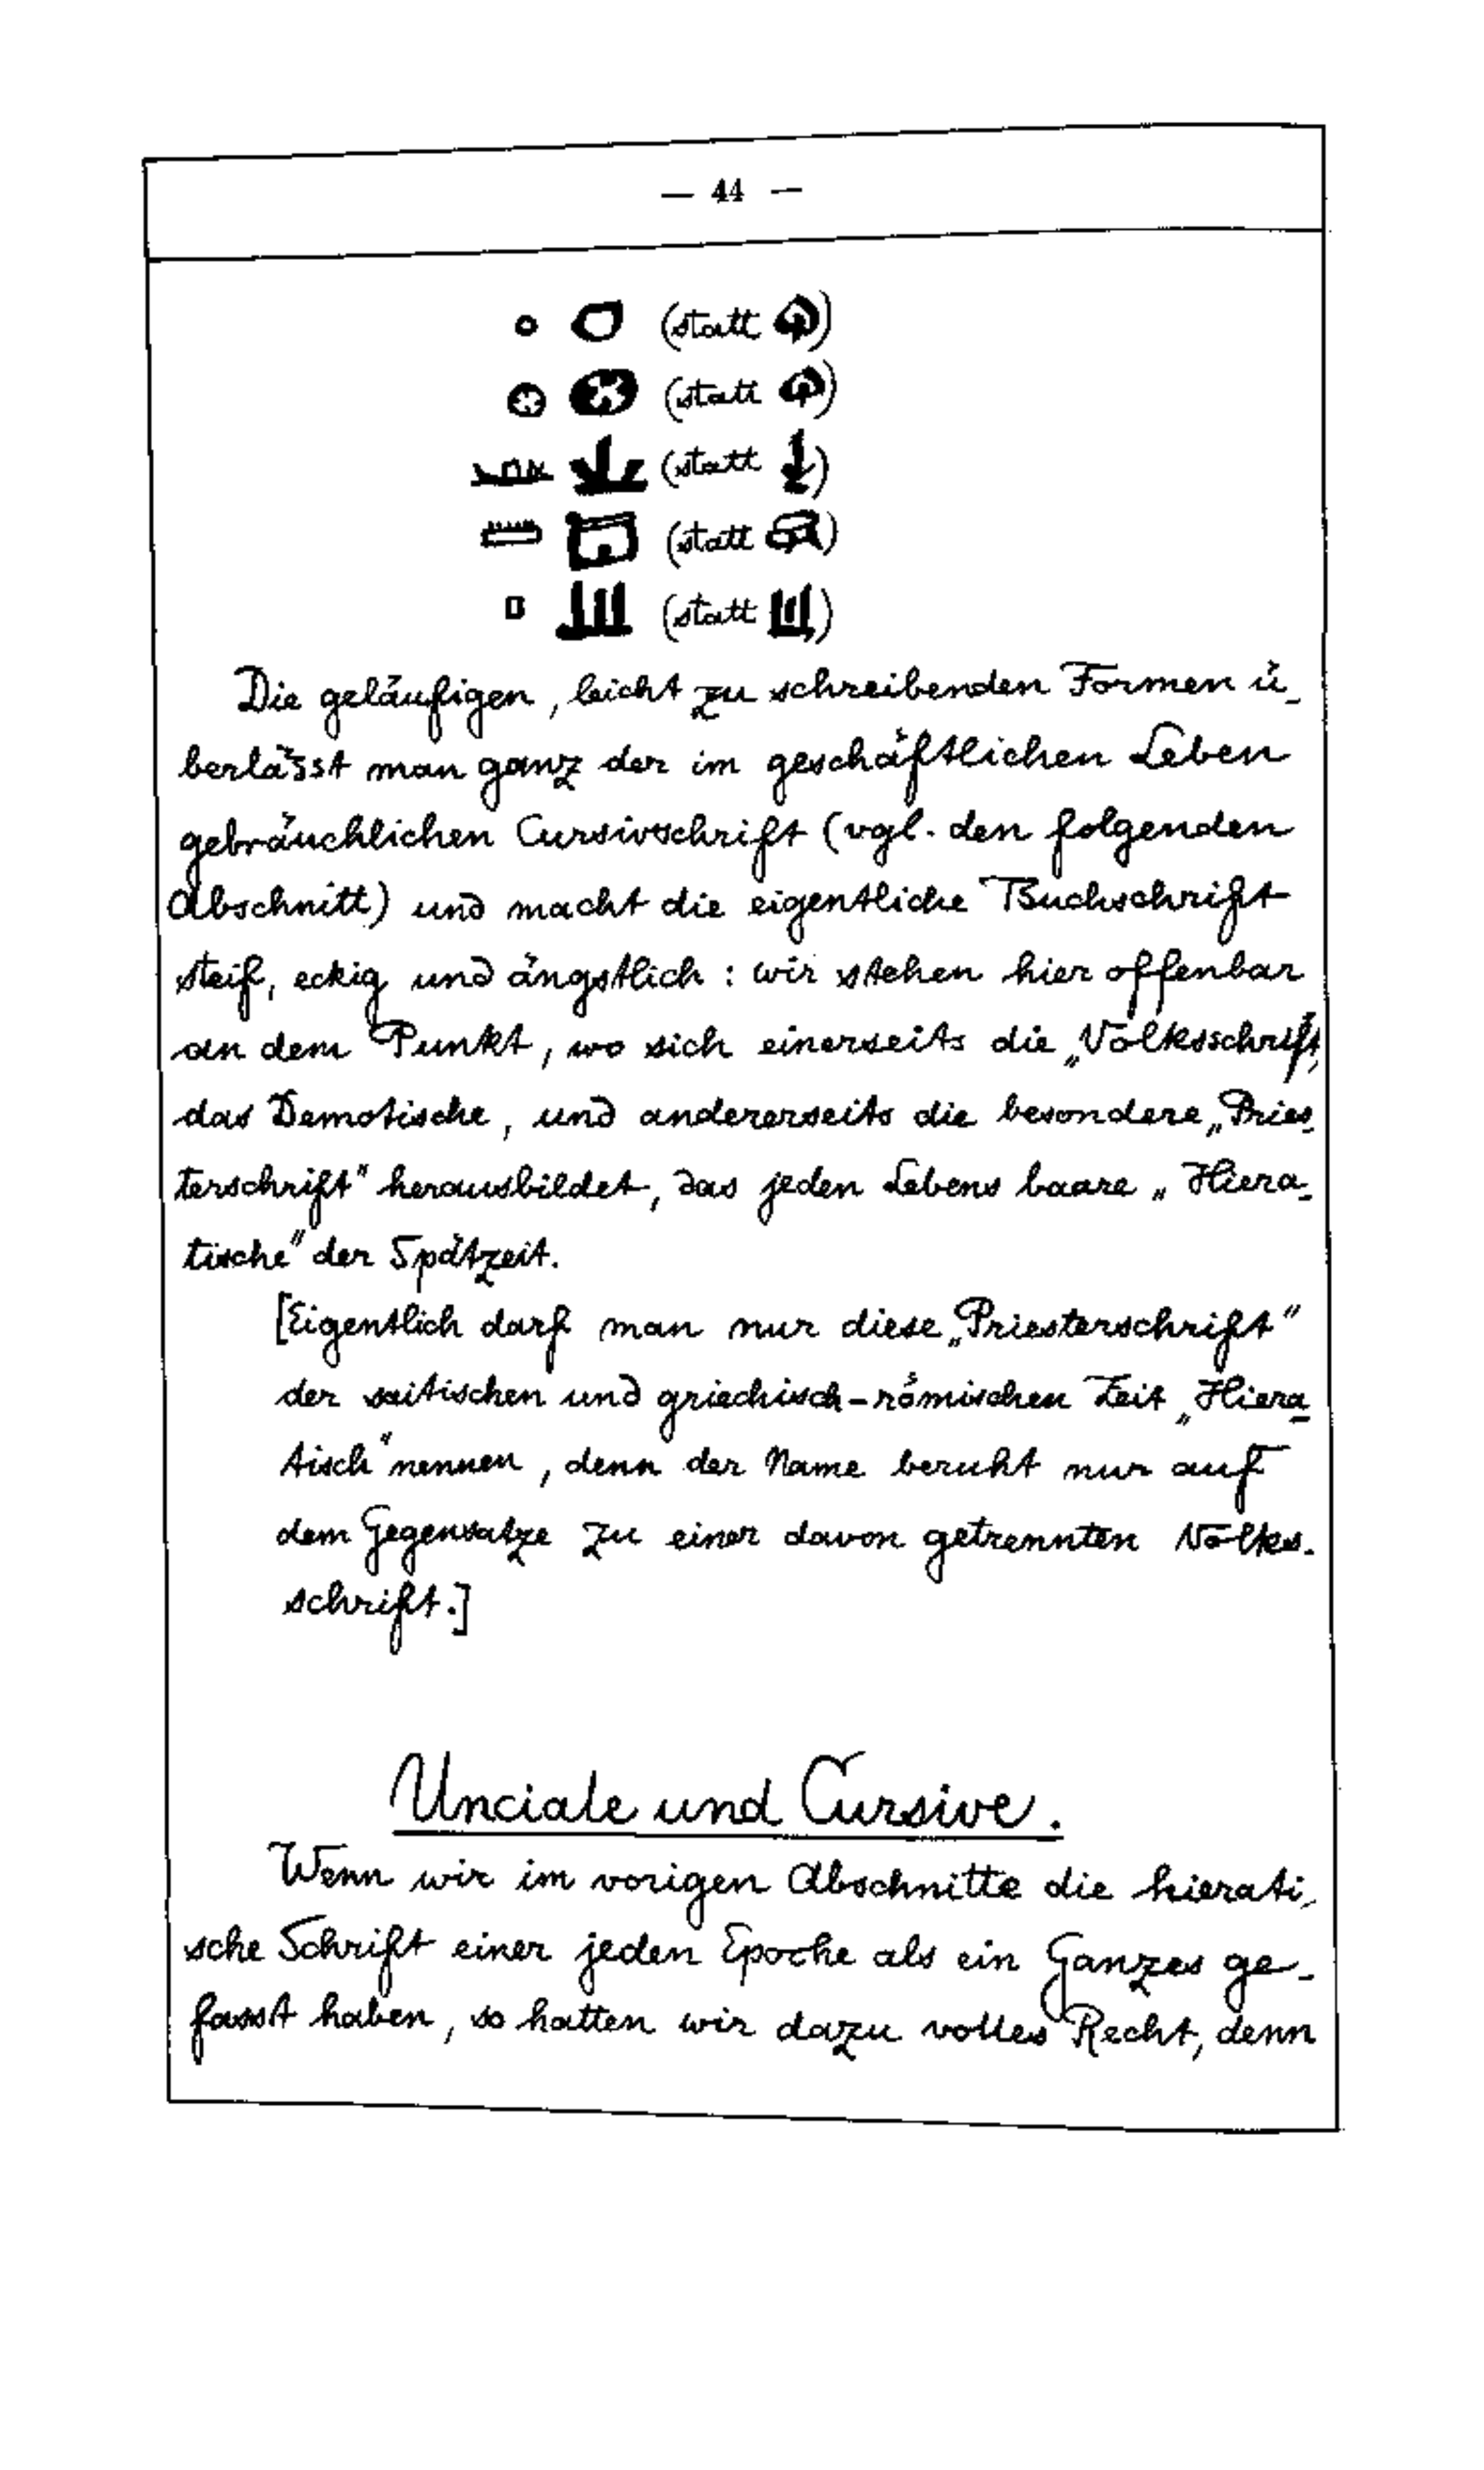 — 44 —
(statt )
(statt )
(statt )
(statt )
(statt )
Die geläufigen, leicht zu schreibenden Formen ü-
berlässt man ganz der im geschäftlichen Leben
gebräuchlichen Cursivschrift (vgl. den folgenden
Abschnitt) und macht die eigentliche Buchschrift
steif, eckig und ängstlich: wir stehen hier offenbar
an dem Punkt, wo sich einerseits die „Volksschrift,
das Demotische, und andererseits die besondere „Pries-
terschrift" herausbildet, das jeden Lebens baare „Hiera-
tische" der Spätzeit.
[Eigentlich darf man nur diese „Priesterschrift"
der saitischen und griechisch-römischen Zeit „Hiera-
tisch" nennen, denn der Name beruht nur auf
dem Gegensatze zu einer davon getrennten Volks-
schrift.]
Unciale und Cursive.
Wenn wir im vorigen Abschnitte die hierati-
sche Schrift einer jeden Epoche als ein Ganzes ge-
fasst haben, so hatten wir dazu volles Recht, denn